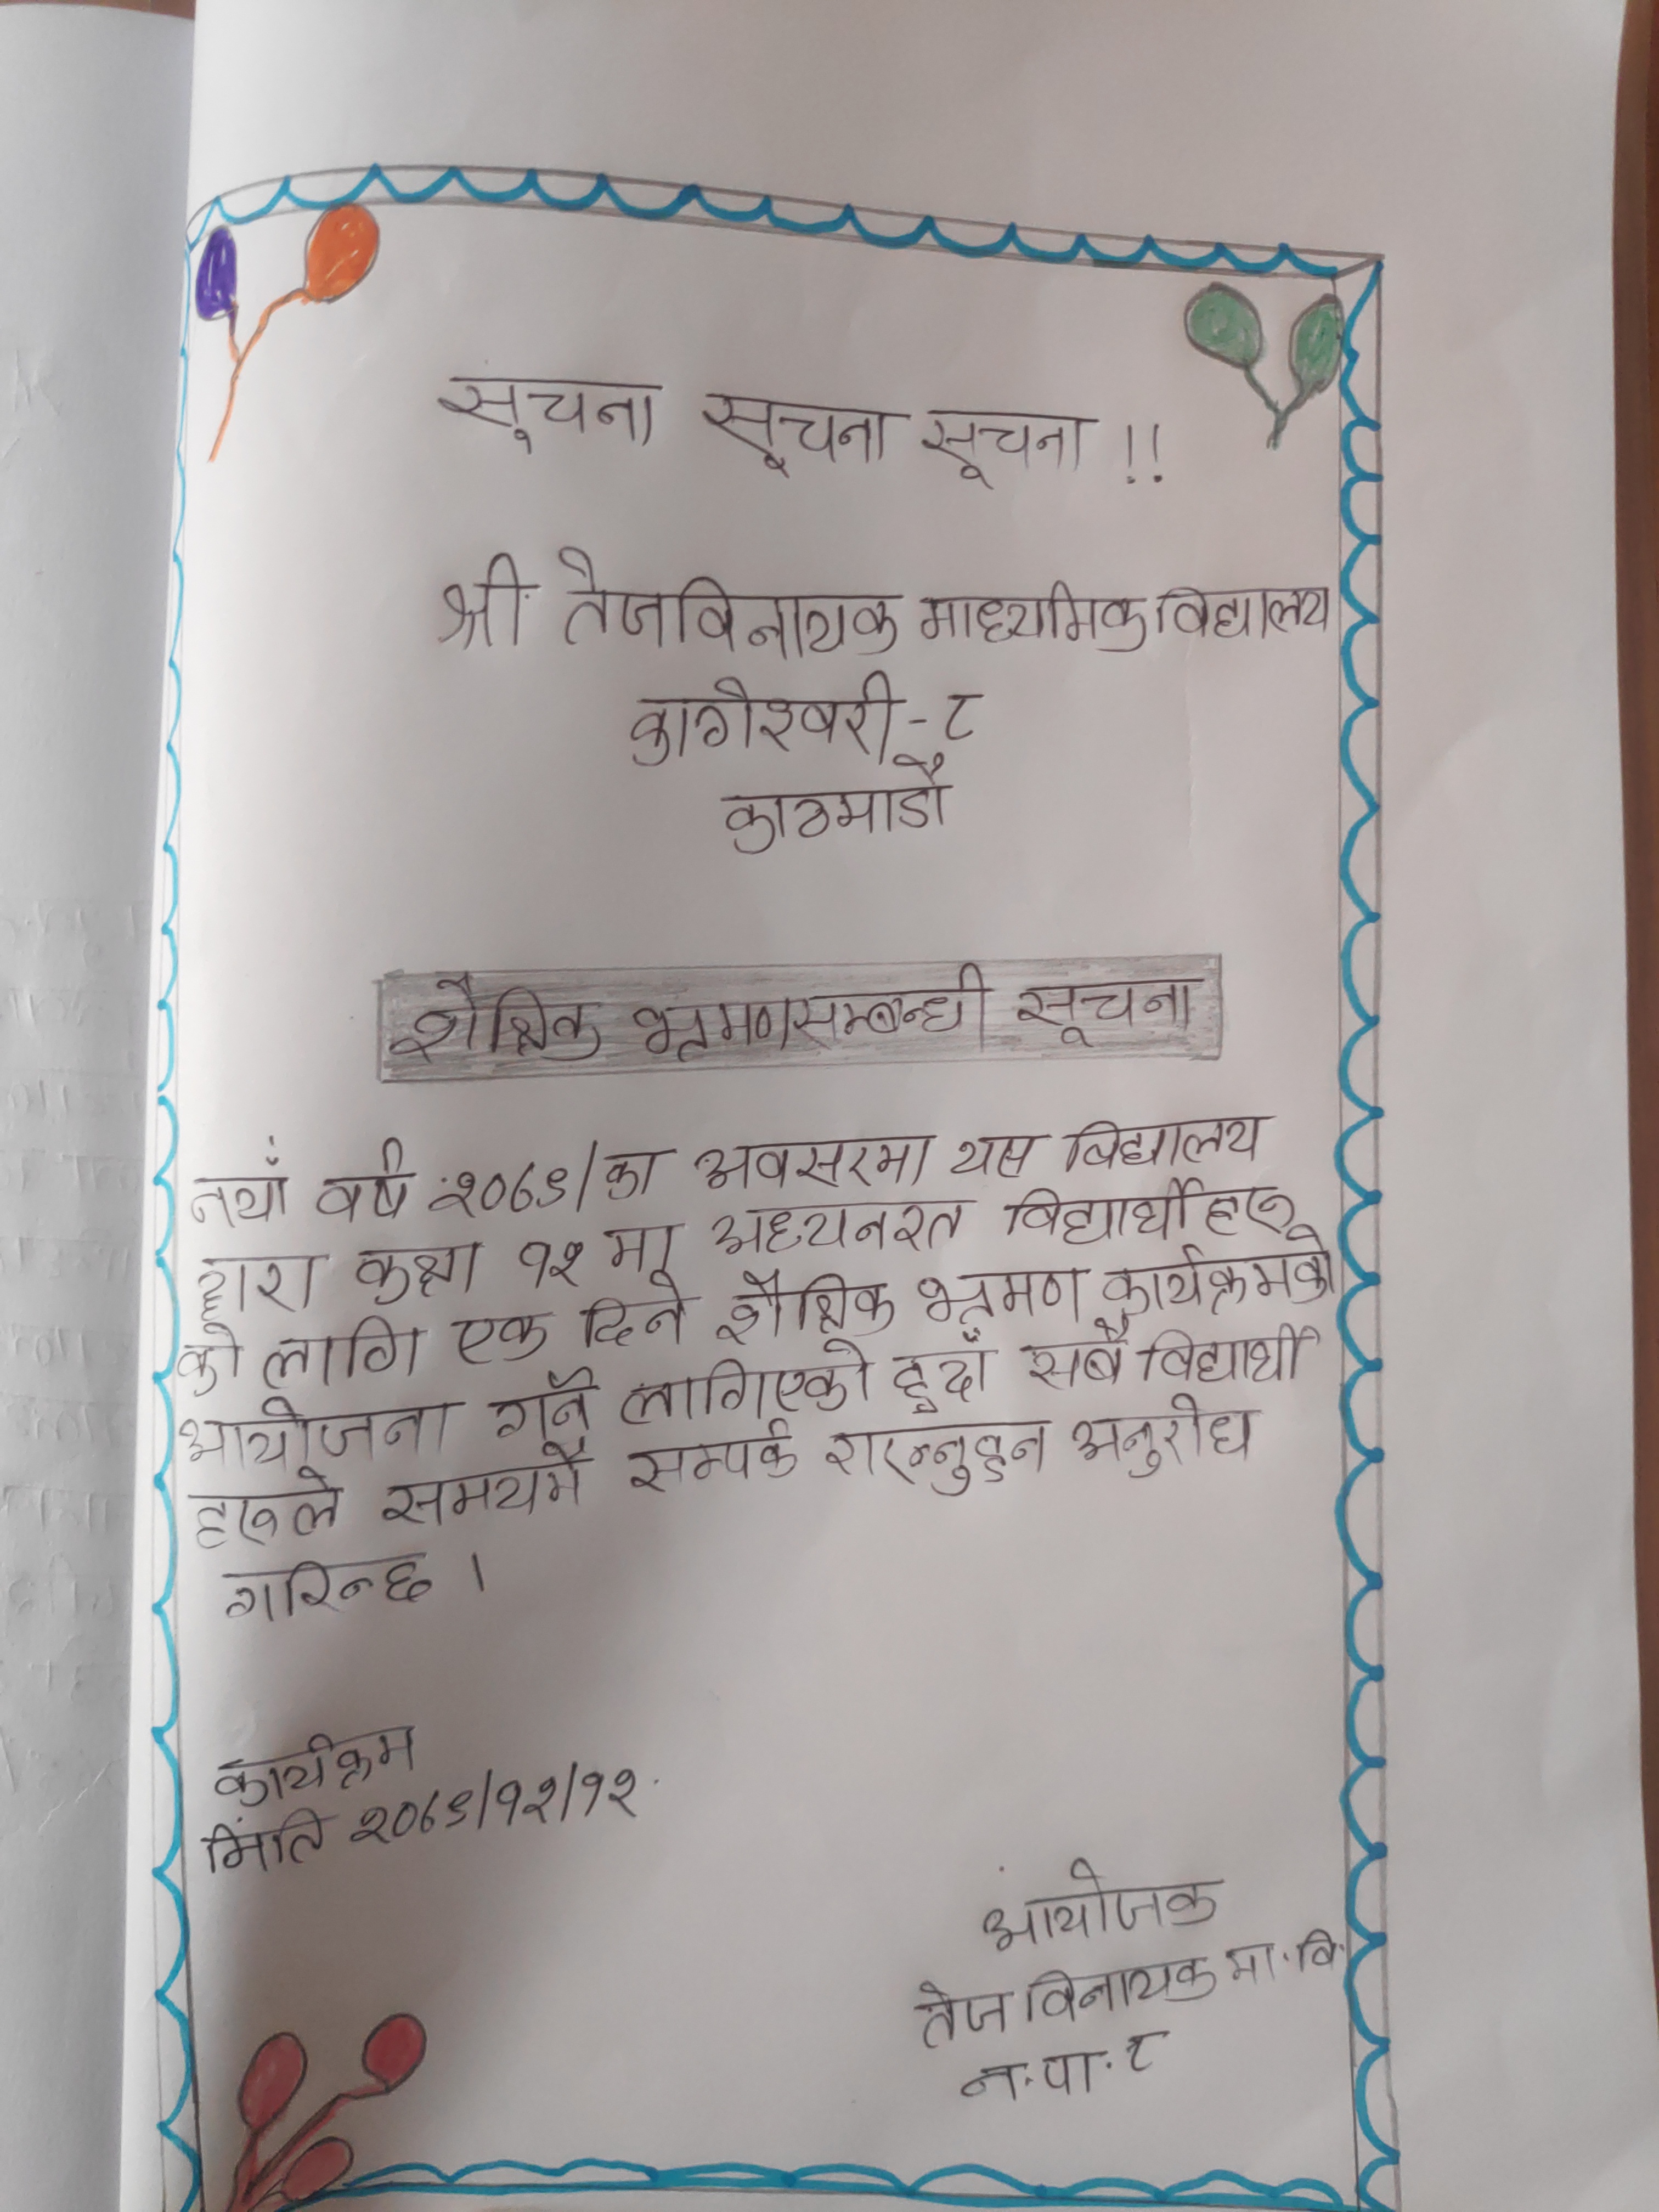 सूचना सूचना सूचना !!
श्री तेजविनायक माध्यमिक विद्यालय
कागेश्वरी - ८
काठमाडौं
शैक्षिक भ्रमणसम्बन्धी सूचना
नयाँ वर्ष २०७९/का अवसरमा यस विद्यालय
द्वारा कक्षा १२ मा अध्यनरत विद्यार्थीहरू
को लागि एक दिने शैक्षिक भ्रमण कार्यक्रमको
आयोजना गर्न लागिएको हुदाँ सबै विद्यार्थी
हरूले समयमै सम्पर्क राख्नुहुन अनुरोध
गरिन्छ ।
कार्यक्रम
मिति २०७९/१२/१२
आयोजक
तेज विनायक मा.वि.
न.पा. ८